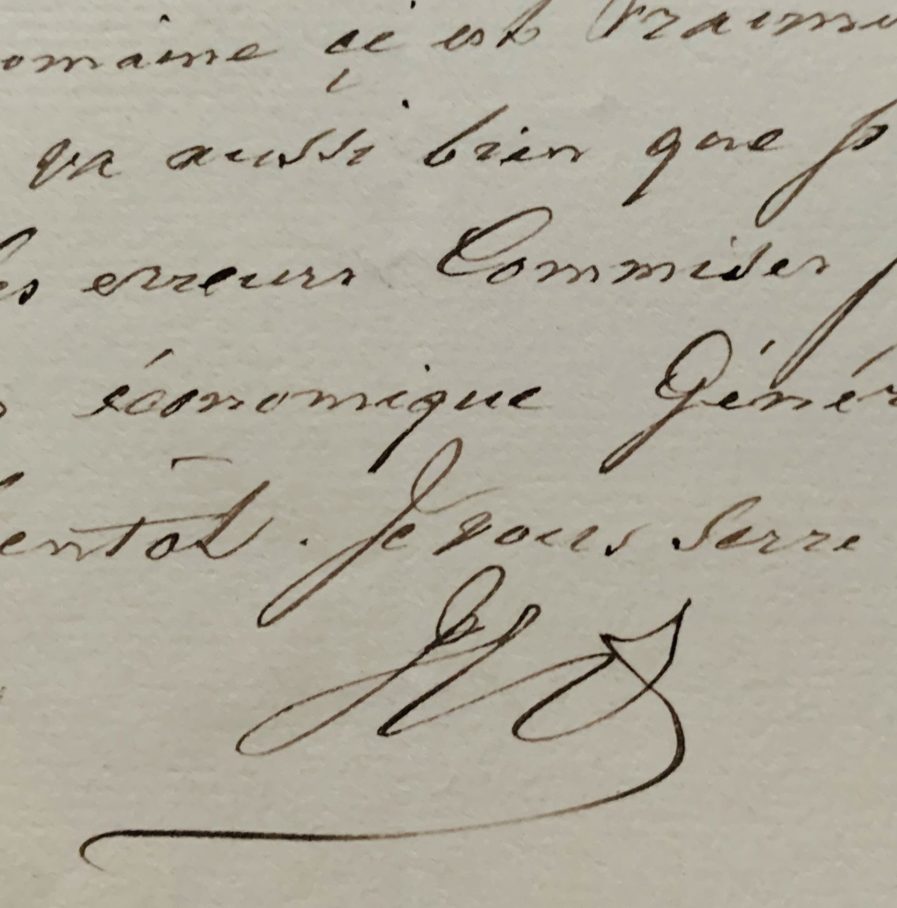 omaine çi est Vraime
va aussi bien que p
es erreurs Commises p
économique Génér
entôt. Je vous serre